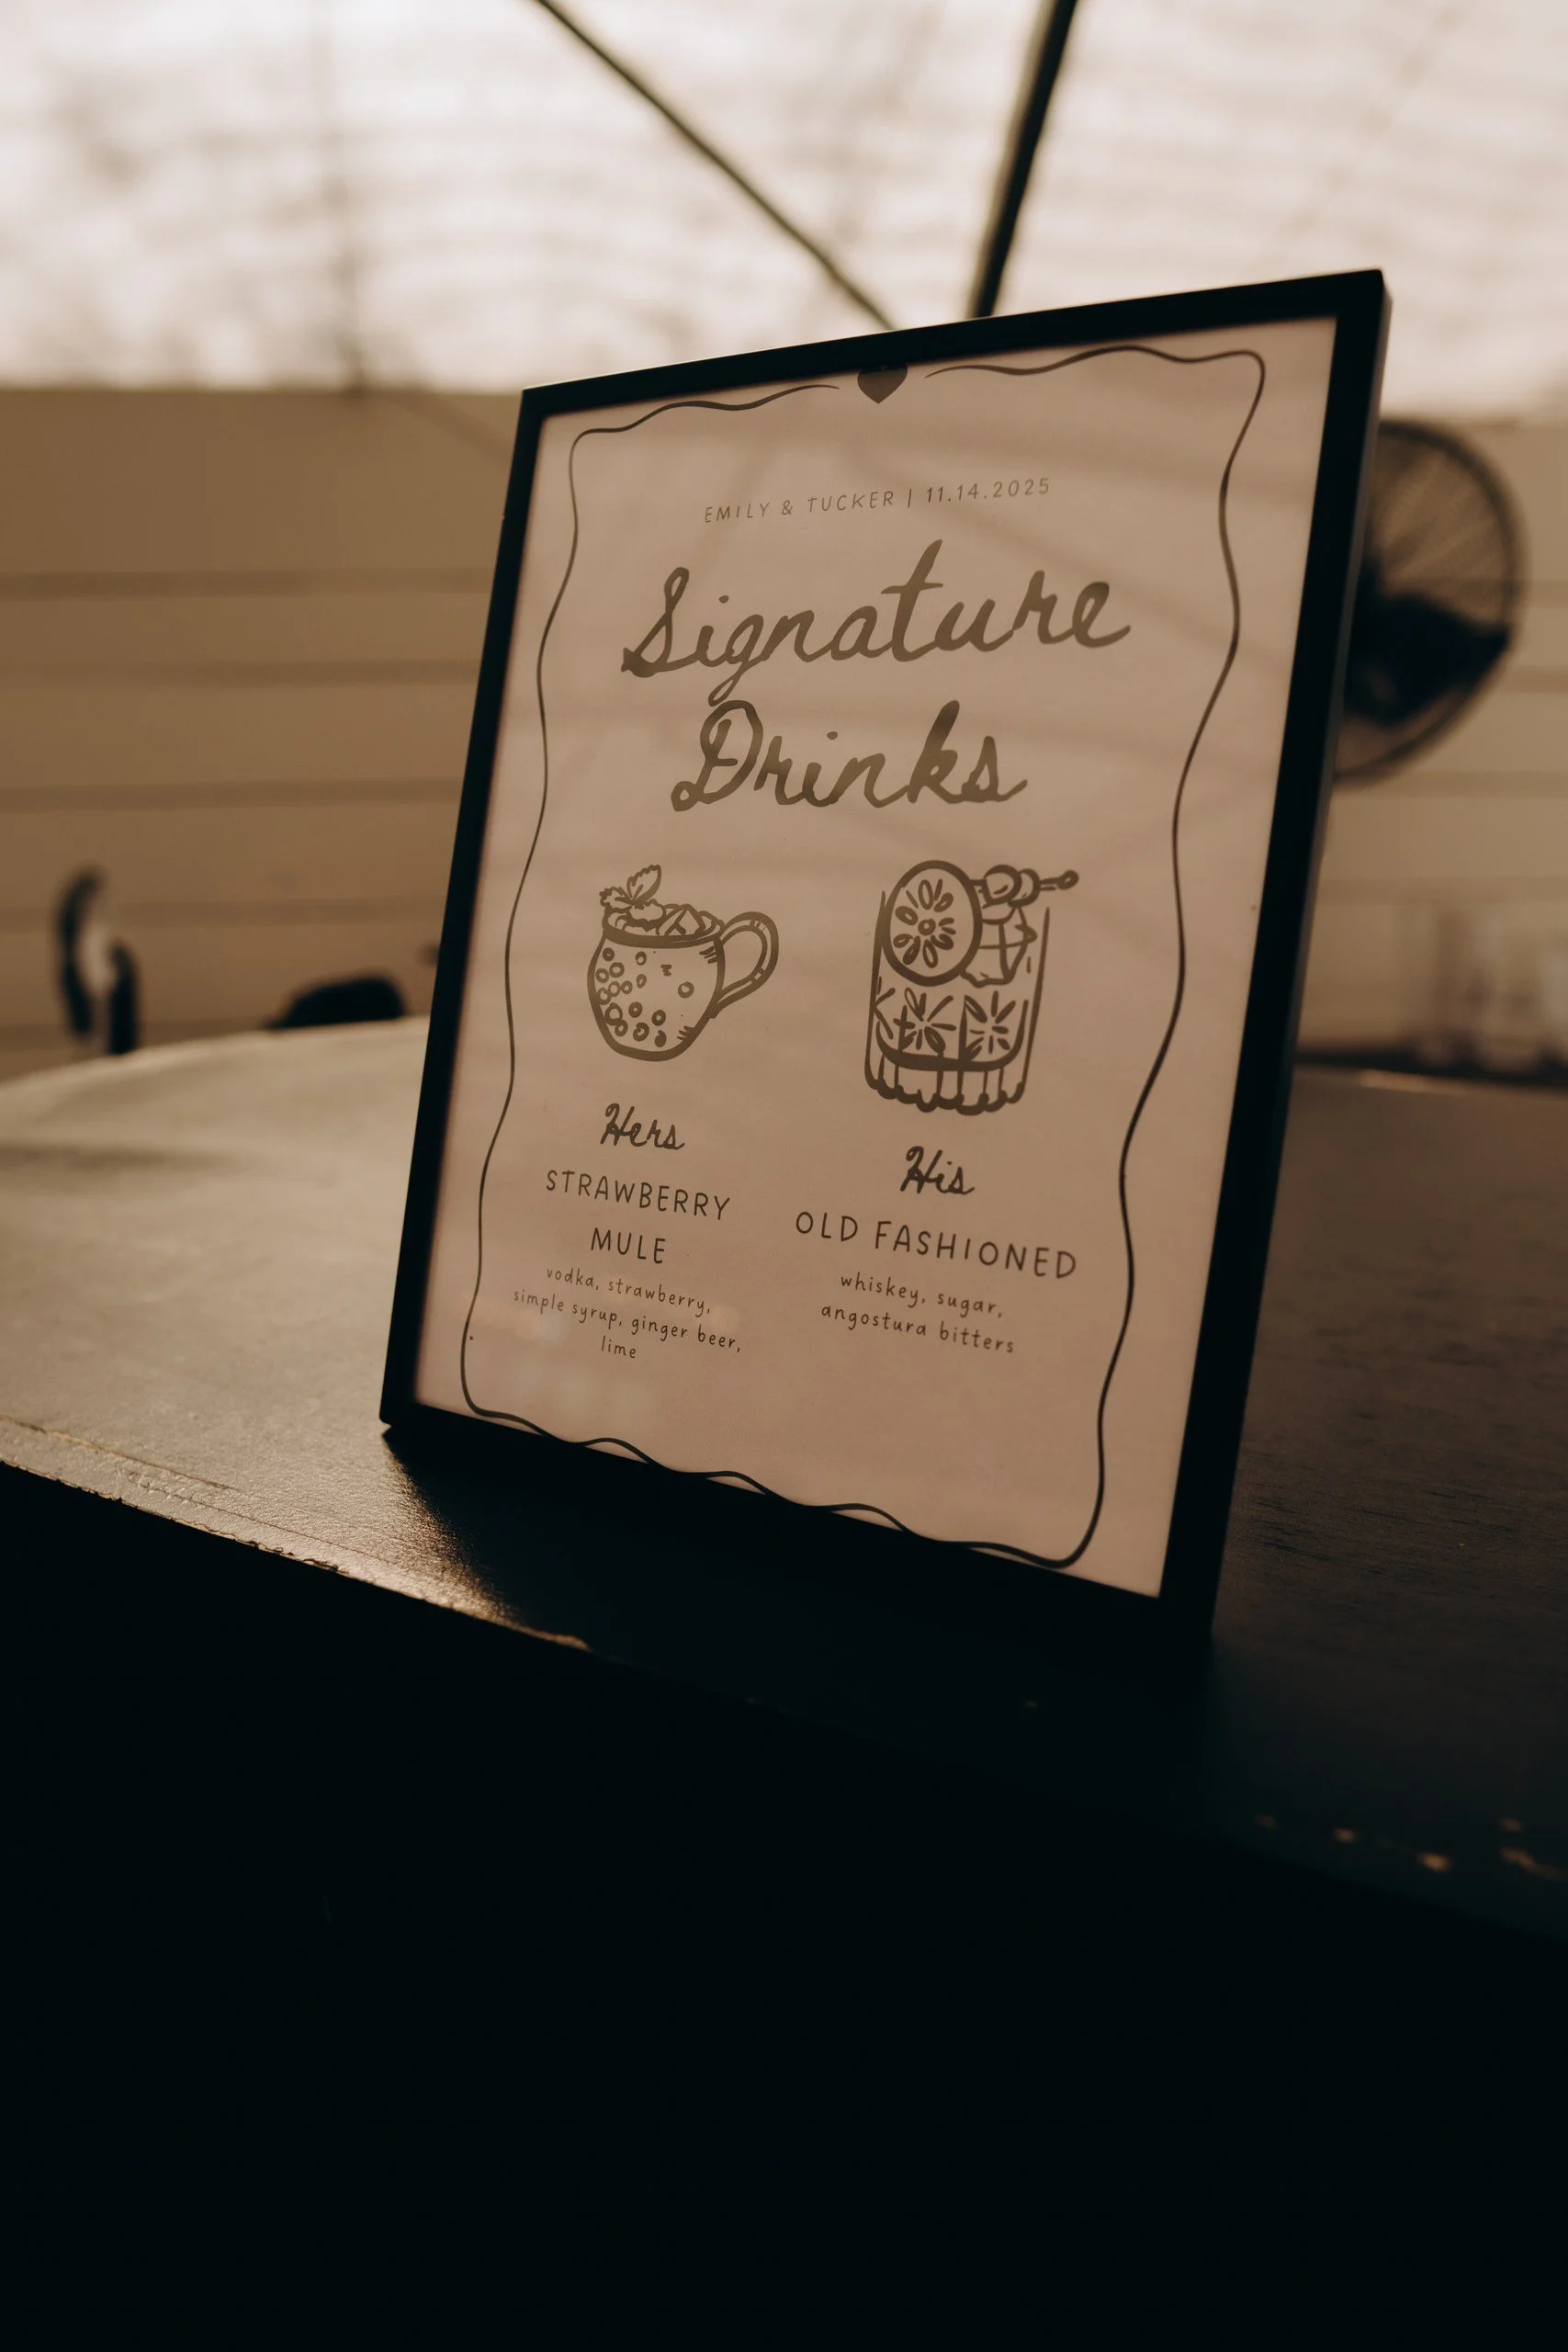 EMILY & TUCKER | 11.14.2025
Signature
Drinks
Hers
STRAWBERRY
MULE
vodka, strawberry,
simple syrup, ginger beer,
lime
His
OLD FASHIONED
whiskey, sugar,
angostura bitters